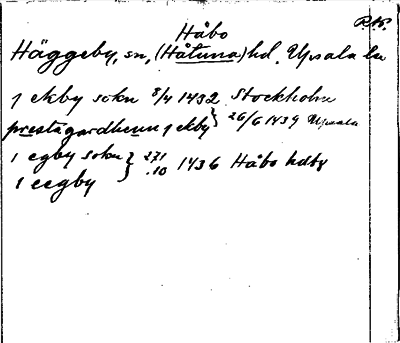 Håbo
R.A.
Häggeby, sn, (Håtuna) hd. Upsala län
j ekby sokn 8/4 1432 Stockholm
prestagardhenn j ekby } 26/6 1439 Upsala
i egby sokn } 27/10 1436 Håbo hdtg
i eegby